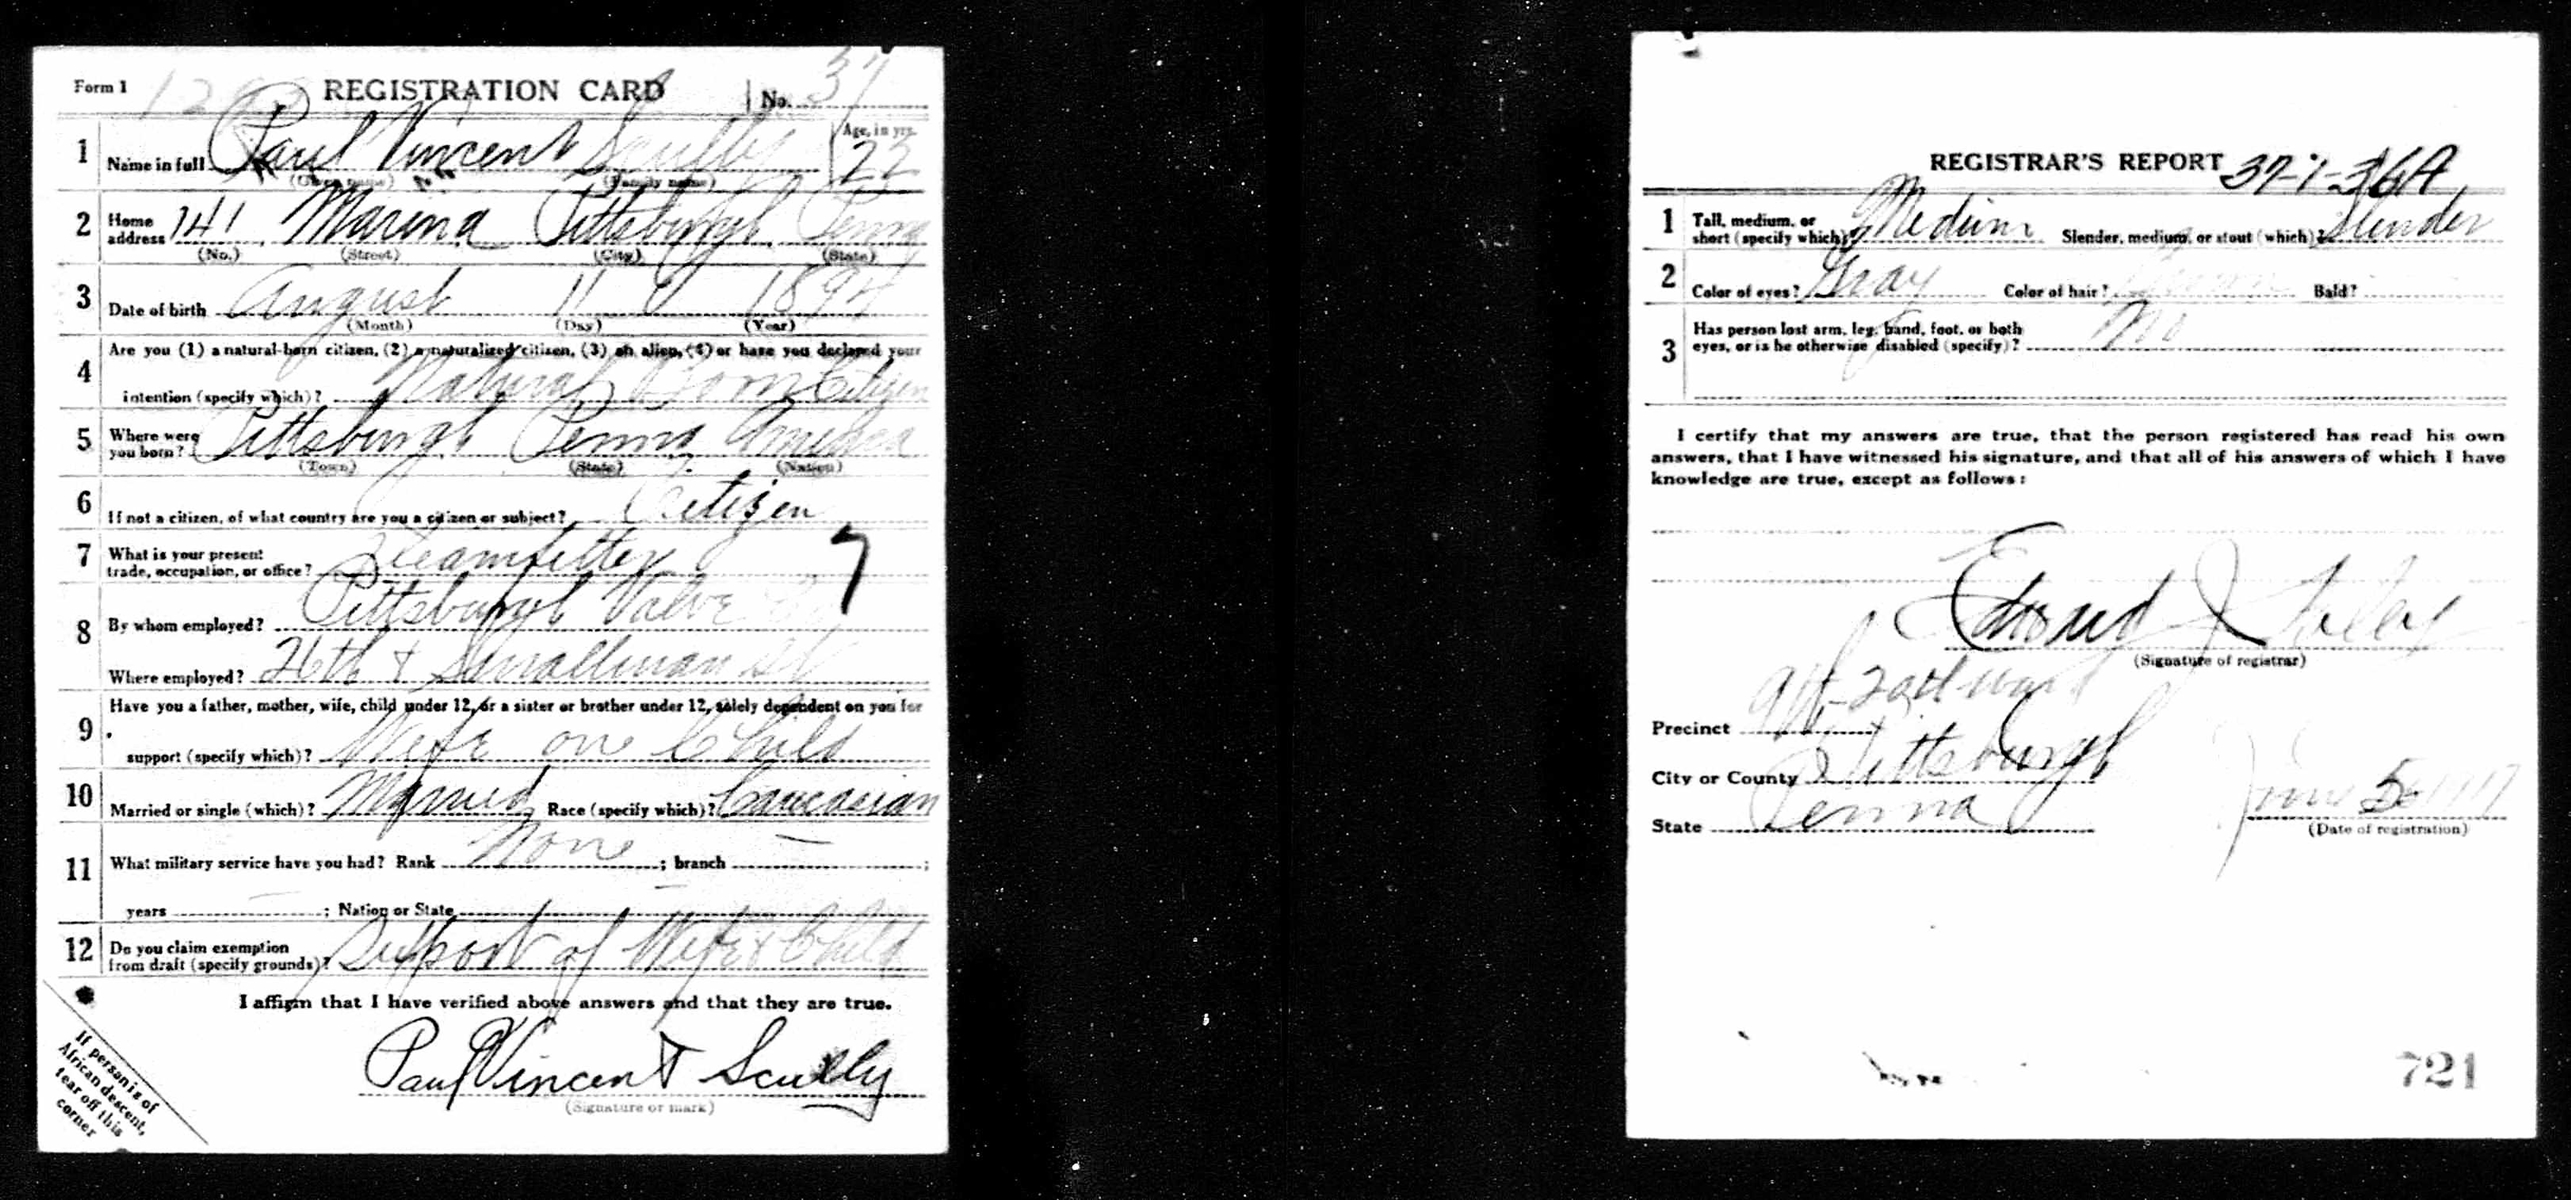 Form 1
REGISTRATION CARD
No. 37
1 Name in full Paul Vincent Scully
(Given name) (Family name)
Age, in yrs. 22
2 Home address 141 Marina Pittsburgh Penna
(No.) (Street) (City) (State)
3 Date of birth August 11 1894
(Month) (Day) (Year)
4 Are you (1) a natural-born citizen, (2) a naturalized citizen, (3) an alien, (4) or have you declared your
intention (specify which)? Natural Born Citizen
5 Where were you born? Pittsburgh Penna America
(Town) (State) (Nation)
6 If not a citizen, of what country are you a citizen or subject? Citizen
7 What is your present
trade, occupation, or office? Steamfitter
7
8 By whom employed? Pittsburgh Valve
Where employed? 26th & Smallman St
9 Have you a father, mother, wife, child under 12, or a sister or brother under 12, solely dependent on you for
support (specify which)? Wife one Child
10 Married or single (which)? Married Race (specify which)? Caucasian
11 What military service have you had? Rank None ; branch — ;
years — ; Nation or State —
12 Do you claim exemption
from draft (specify grounds)? Support of Wife & Child
I affirm that I have verified above answers and that they are true.
Paul Vincent Scully
(Signature or mark)
If person is of
African descent,
tear off this
corner
REGISTRAR'S REPORT 37-1-36A
1 Tall, medium, or
short (specify which)? Medium Slender, medium, or stout (which)? Slender
2 Color of eyes? Gray Color of hair? Brown Bald?
3 Has person lost arm, leg, hand, foot, or both
eyes, or is he otherwise disabled (specify)? No
I certify that my answers are true, that the person registered has read his own
answers, that I have witnessed his signature, and that all of his answers of which I have
knowledge are true, except as follows:
Edward J
(Signature of registrar)
Precinct 9th 20th ward
City or County Pittsburgh
State Penna
June 5 1917
(Date of registration)
721